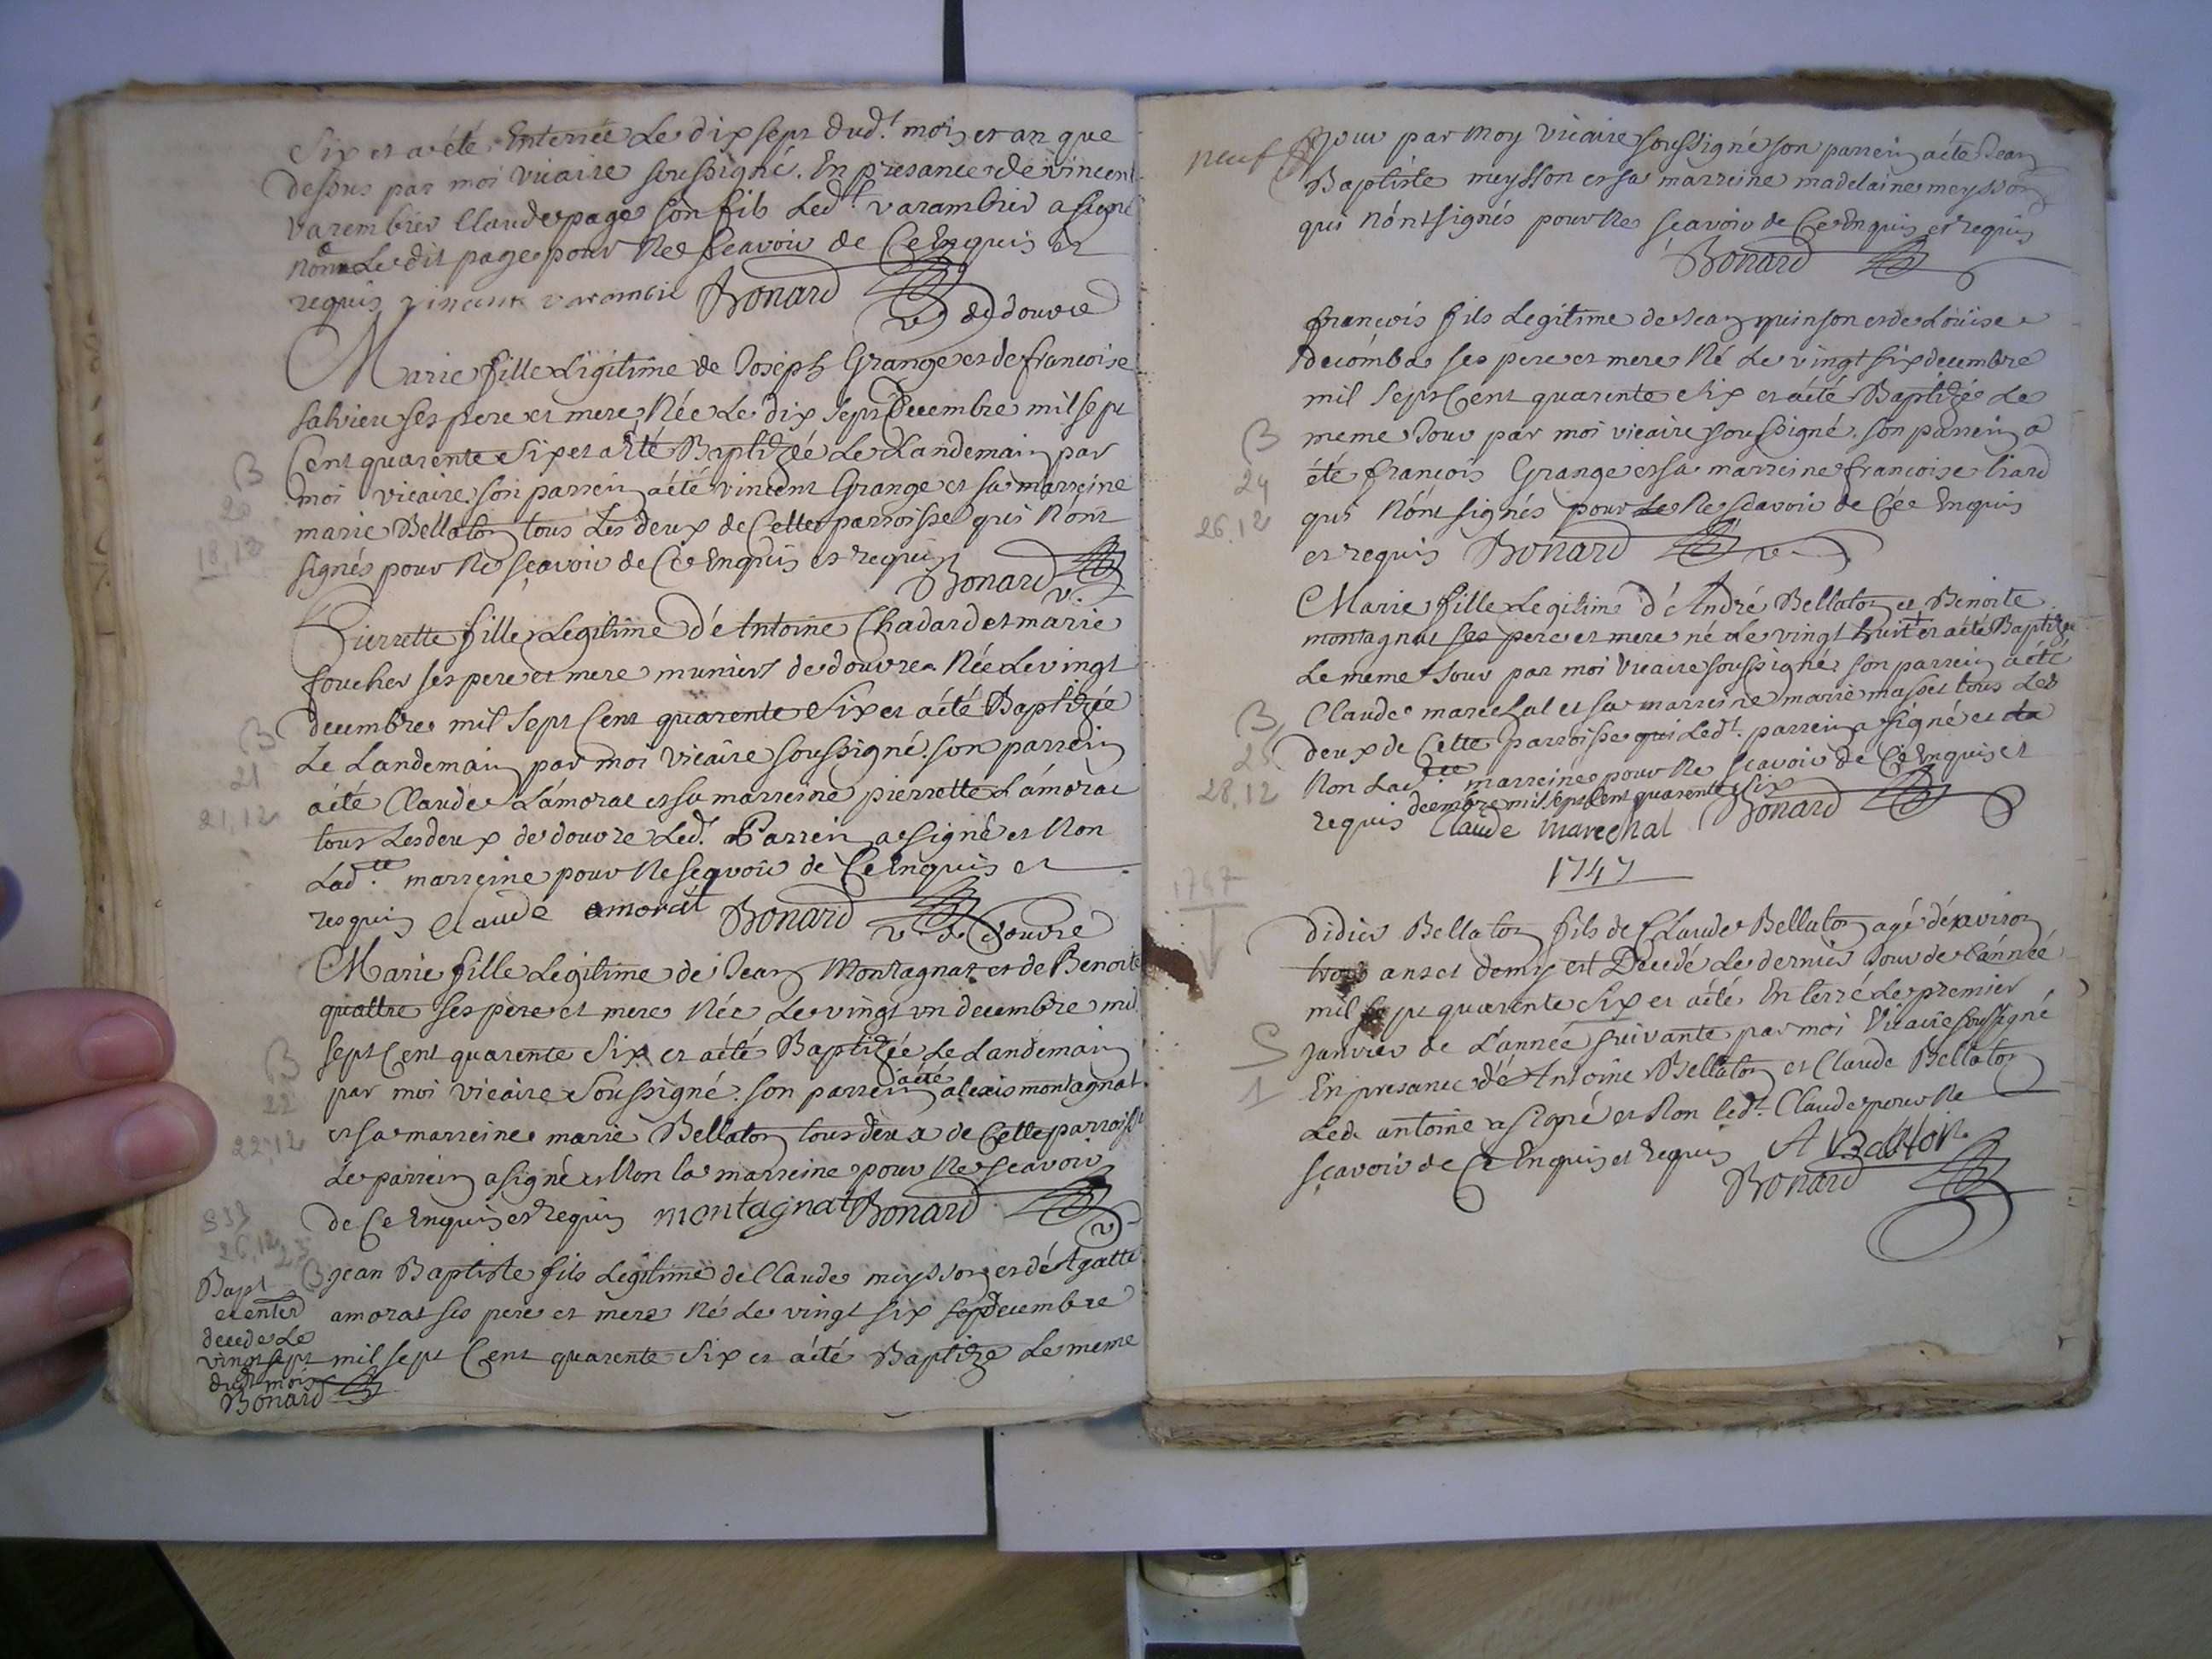 Six et a été Enterrée Le dix sept dud.t mois et an que
dessus par moi vicaire soussigné. En presance de vincent
varembier Claude page son fils Led.t varambier a signé
non Le dit page pour Ne Scavoir de Ce Enquis et
requis vincent varambié Bonard
v. de douvre
Marie fille Ligitime de Joseph Grange et de francoise
salvieu ses pere et mere, Née Le dix sept Decembre mil sept
Cent quarente Six et a été Baptizée Le Landemain par
moi vicaire son parrein a été vincent Grange et sa marreine
marie Bellaton tous Les deux de Cette parroisse qui N'ont
signés pour Ne sçavoir de Ce Enquis et requis
Bonard
v.
Pierrette fille Legitime d'Antoine Chadard et marie
foucher ses pere et mere muniers de douvre Née Le vingt
decembre mil sept Cent quarente Six et a été Baptizée
Le Landemain par moi vicaire soussigné son parrein
a été Claude L'amorat et sa marreine pierrette L'amorat
tous Les deux de douvre Led.t Parrein a signé et Non
Lad.tte marreine pour Ne sçavoir de Ce Enquis et
requis claude amorat Bonard
v. de douvre
Marie fille Legitime de Jean Montagnat et de Benoite
quattre ses père et mere Née Le vingt un decembre mil
sept Cent quarente Six et a été Baptizée Le Landemain
par moi vicaire Soussigné. son parrein a été alexis montagnat
et sa marreine marie Bellaton tous deux de Cette parroisse
Le parrein a signé et Non la marreine pour Ne Scavoir
de Ce Enquis et requis montagnat Bonard
v
Jean Baptiste fils Legitime de Claude meysson et d'Agatte
amorat ses pere et mere Né Le vingt six sep decembre
mil sept Cent quarente Six et a été Baptizé Le meme
B
20
18,12
B
21
21,12
B
22
22,12
S 33
26,12
23
B
Bapt
et enter
decede Le
vingt sept
dud.t mois
Bonard
neuf
Jour par Moy vicaire soussigné son parrein a été Jean
Baptiste meysson et sa marreine madelaine meysson
qui N'ont signés pour Ne sçavoir de Ce Enquis et requis
Bonard
françois fils Legitime de Jean quinson et de Loüise
decomba ses pere et mere Né Le vingt six decembre
mil Sept Cent quarente Six et a été Baptizé Le
meme Jour par moi vicaire soussigné. son parrein a
été francois Grange et sa marreine francoise liard
qui N'ont signés pour Le Ne scavoir de Cée Enquis
et requis Bonard
Marie fille Legitime d'André Bellaton et Benoite
montagnat ses pere et mere né Le vingt huit et a été Baptizé
Le meme Jour par moi vicaire soussigné son parrein a été
Claude marechal et sa marreine marie masset tous Les
deux de Cette parroisse qui Led.t parrein a signé et La
Non Lad.tte marreine pour Ne scavoir de Ce Enquis et
requis decembre mil sept cent quarente six
Claude marechal Bonard
1747
Didier Bellaton fils de Claude Bellaton agé d'environ
trois ans et demy est Decedé Le dernier Jour de L'année
mil sept quarente Six et a été Enterré Le premier
Janvier de L'année suivante par moi Vicaire soussigné
En presance d'Antoine Bellaton et Claude Bellaton
Led. antoine a signé et Non led.t Claude pour Ne
sçavoir de Ce Enquis et requis A Bellaton
Bonard
B
24
26,12
B
25
28,12
1747
S
1